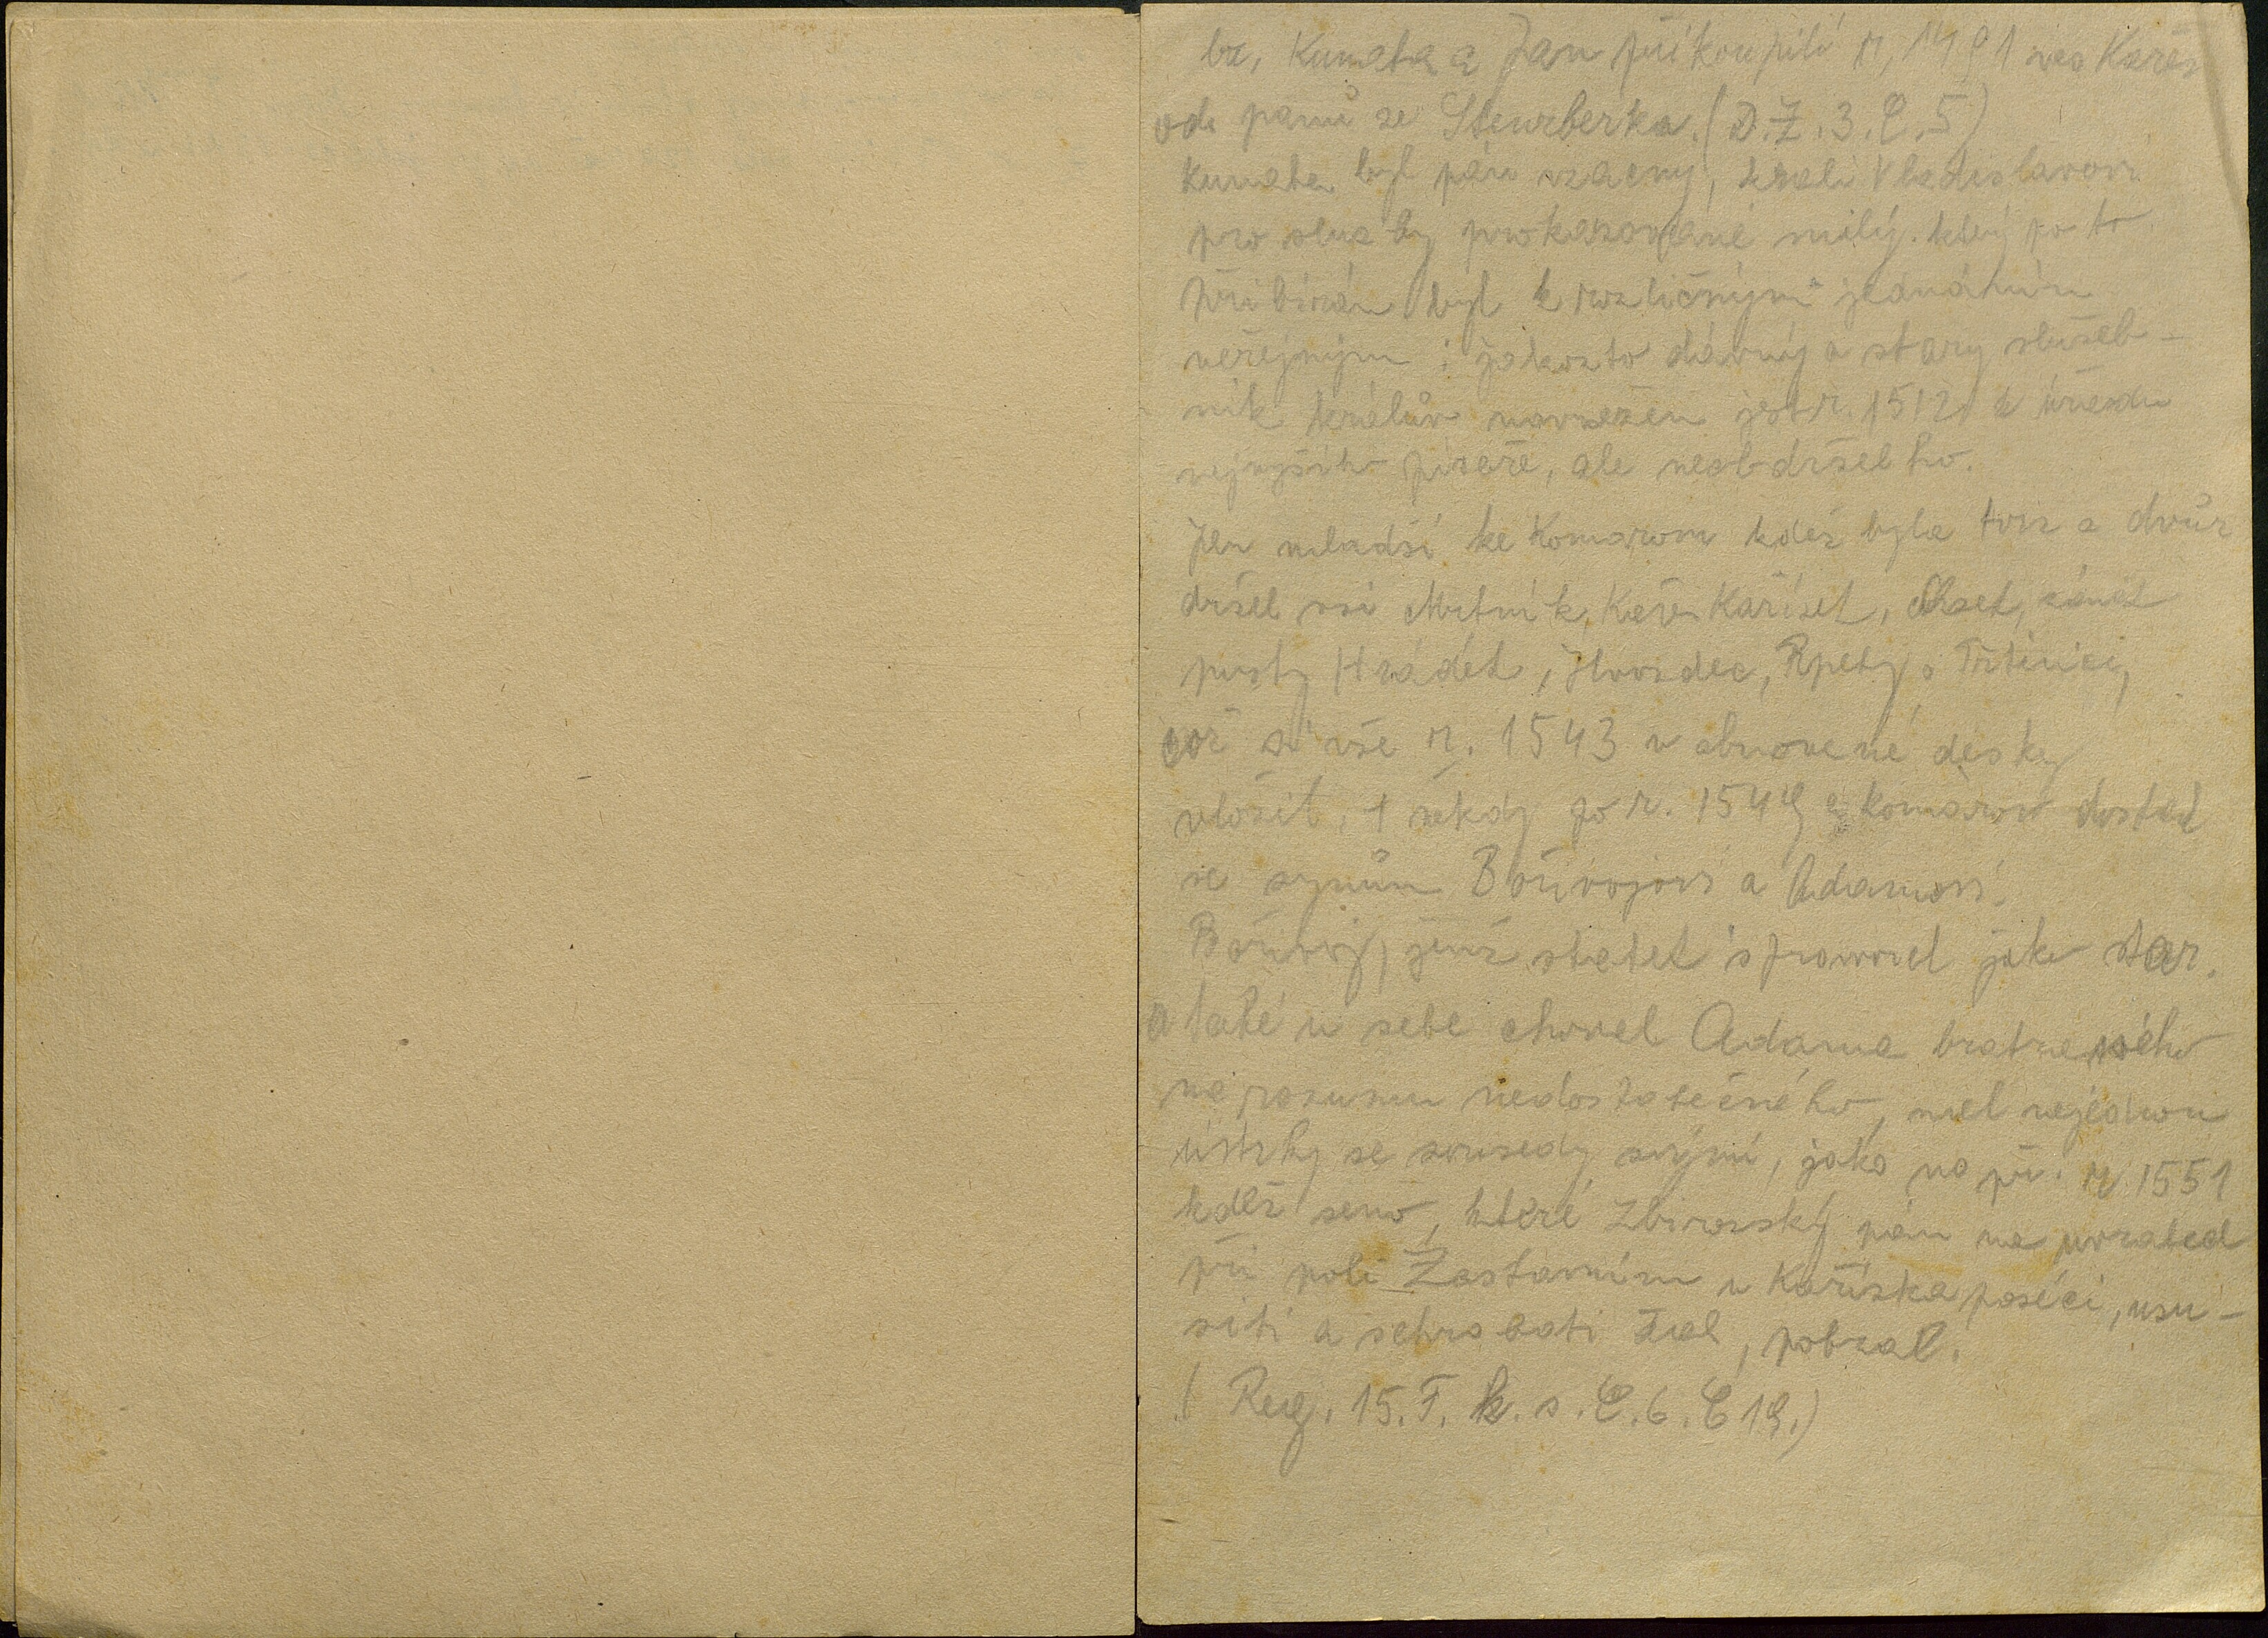 ba, Kunata a Jan přikoupili r, 1491 ves Kařez
od pánů ze Šternberka. (D.Z.3.E.5)
Kunata byl pán vzácný, králi Vladislavovi
pro služby prokazované milý. který po to
přibírán byl k rozličným jednáním
veřejným i jakožto dávný a starý služeb-
ník králův navržen jest r. 1512 k úřadu
nejvyššího písaře, ale neobdržel ho.
Jan mladší ke Komárovu kdež byla tvrz a dvůr
držel vsi Mrtník, Kařez Kařízek, Chzet, zámek
pustý Hrádek, Hvozdec, Rpety, a Trtenici,
což si vše r. 1543 v obnovené desky
vložil, † někdy po r. 1549 a Komárov dostal
se synům Bořivojovi a Adamovi.
Bořivoj, jenž statek spravoval jako star.
a také u sebe choval Adama bratra svého
na rozumu nedostatečného, měl nejednou
ústrky se sousedy svými, jako na př. r. 1551
kdež seno, které Zbirožský pán na
při poli Zastavním u Kařízka poséci, usu-
šiti a sehrabati dal, pobral.
( Reg. 15. T. k. s. E. 6. E 19.)